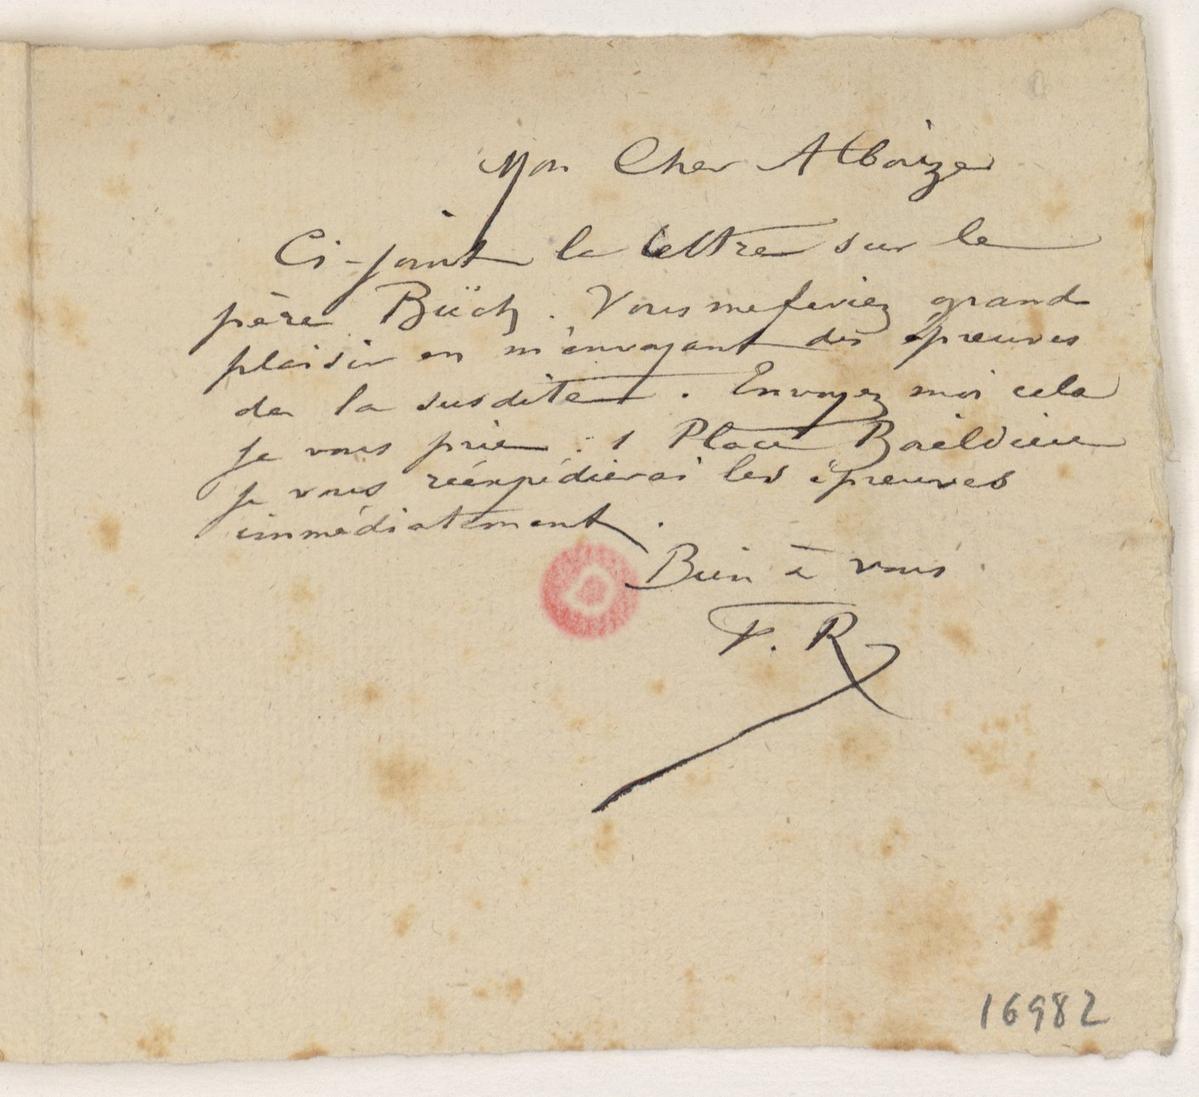 Mon Cher Alboize
Ci-joint la lettre sur le
père Büch. Vous me feriez grand
plaisir en m'envoyant des épreuves
de la susdite. Envoyez moi cela
je vous prie : 1 Place Boïeldieu
je vous réexpédierai les épreuves
immédiatement.
Bien à vous
F. R
16982